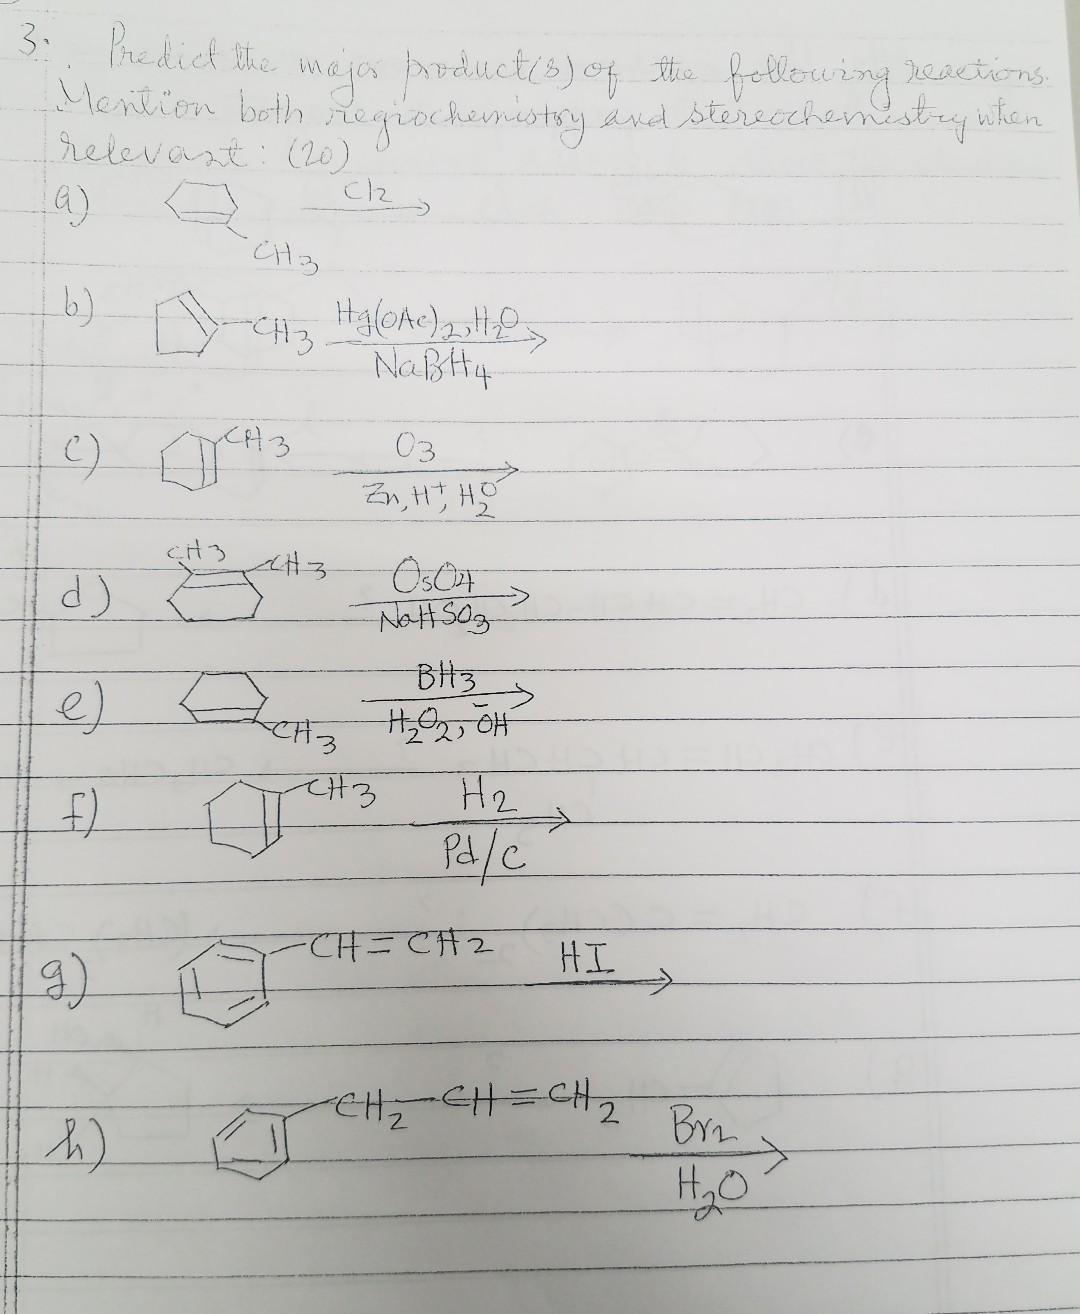 3. Predict the major product(s) of the following reactions.
Mention both regiochemistry and stereochemistry when
relevant: (20)
a) Cl2
CH3
b) CH3 Hg(OAc)2, H2O
NaBH4
c) CH3 O3
Zn, H+, H2O
d) CH3 CH3 OsO4
NaHSO3
e) BH3
CH3 H2O2, ŌH
f) CH3 H2
Pd/C
g) CH=CH2 HI
h) CH2-CH=CH2 Br2
H2O